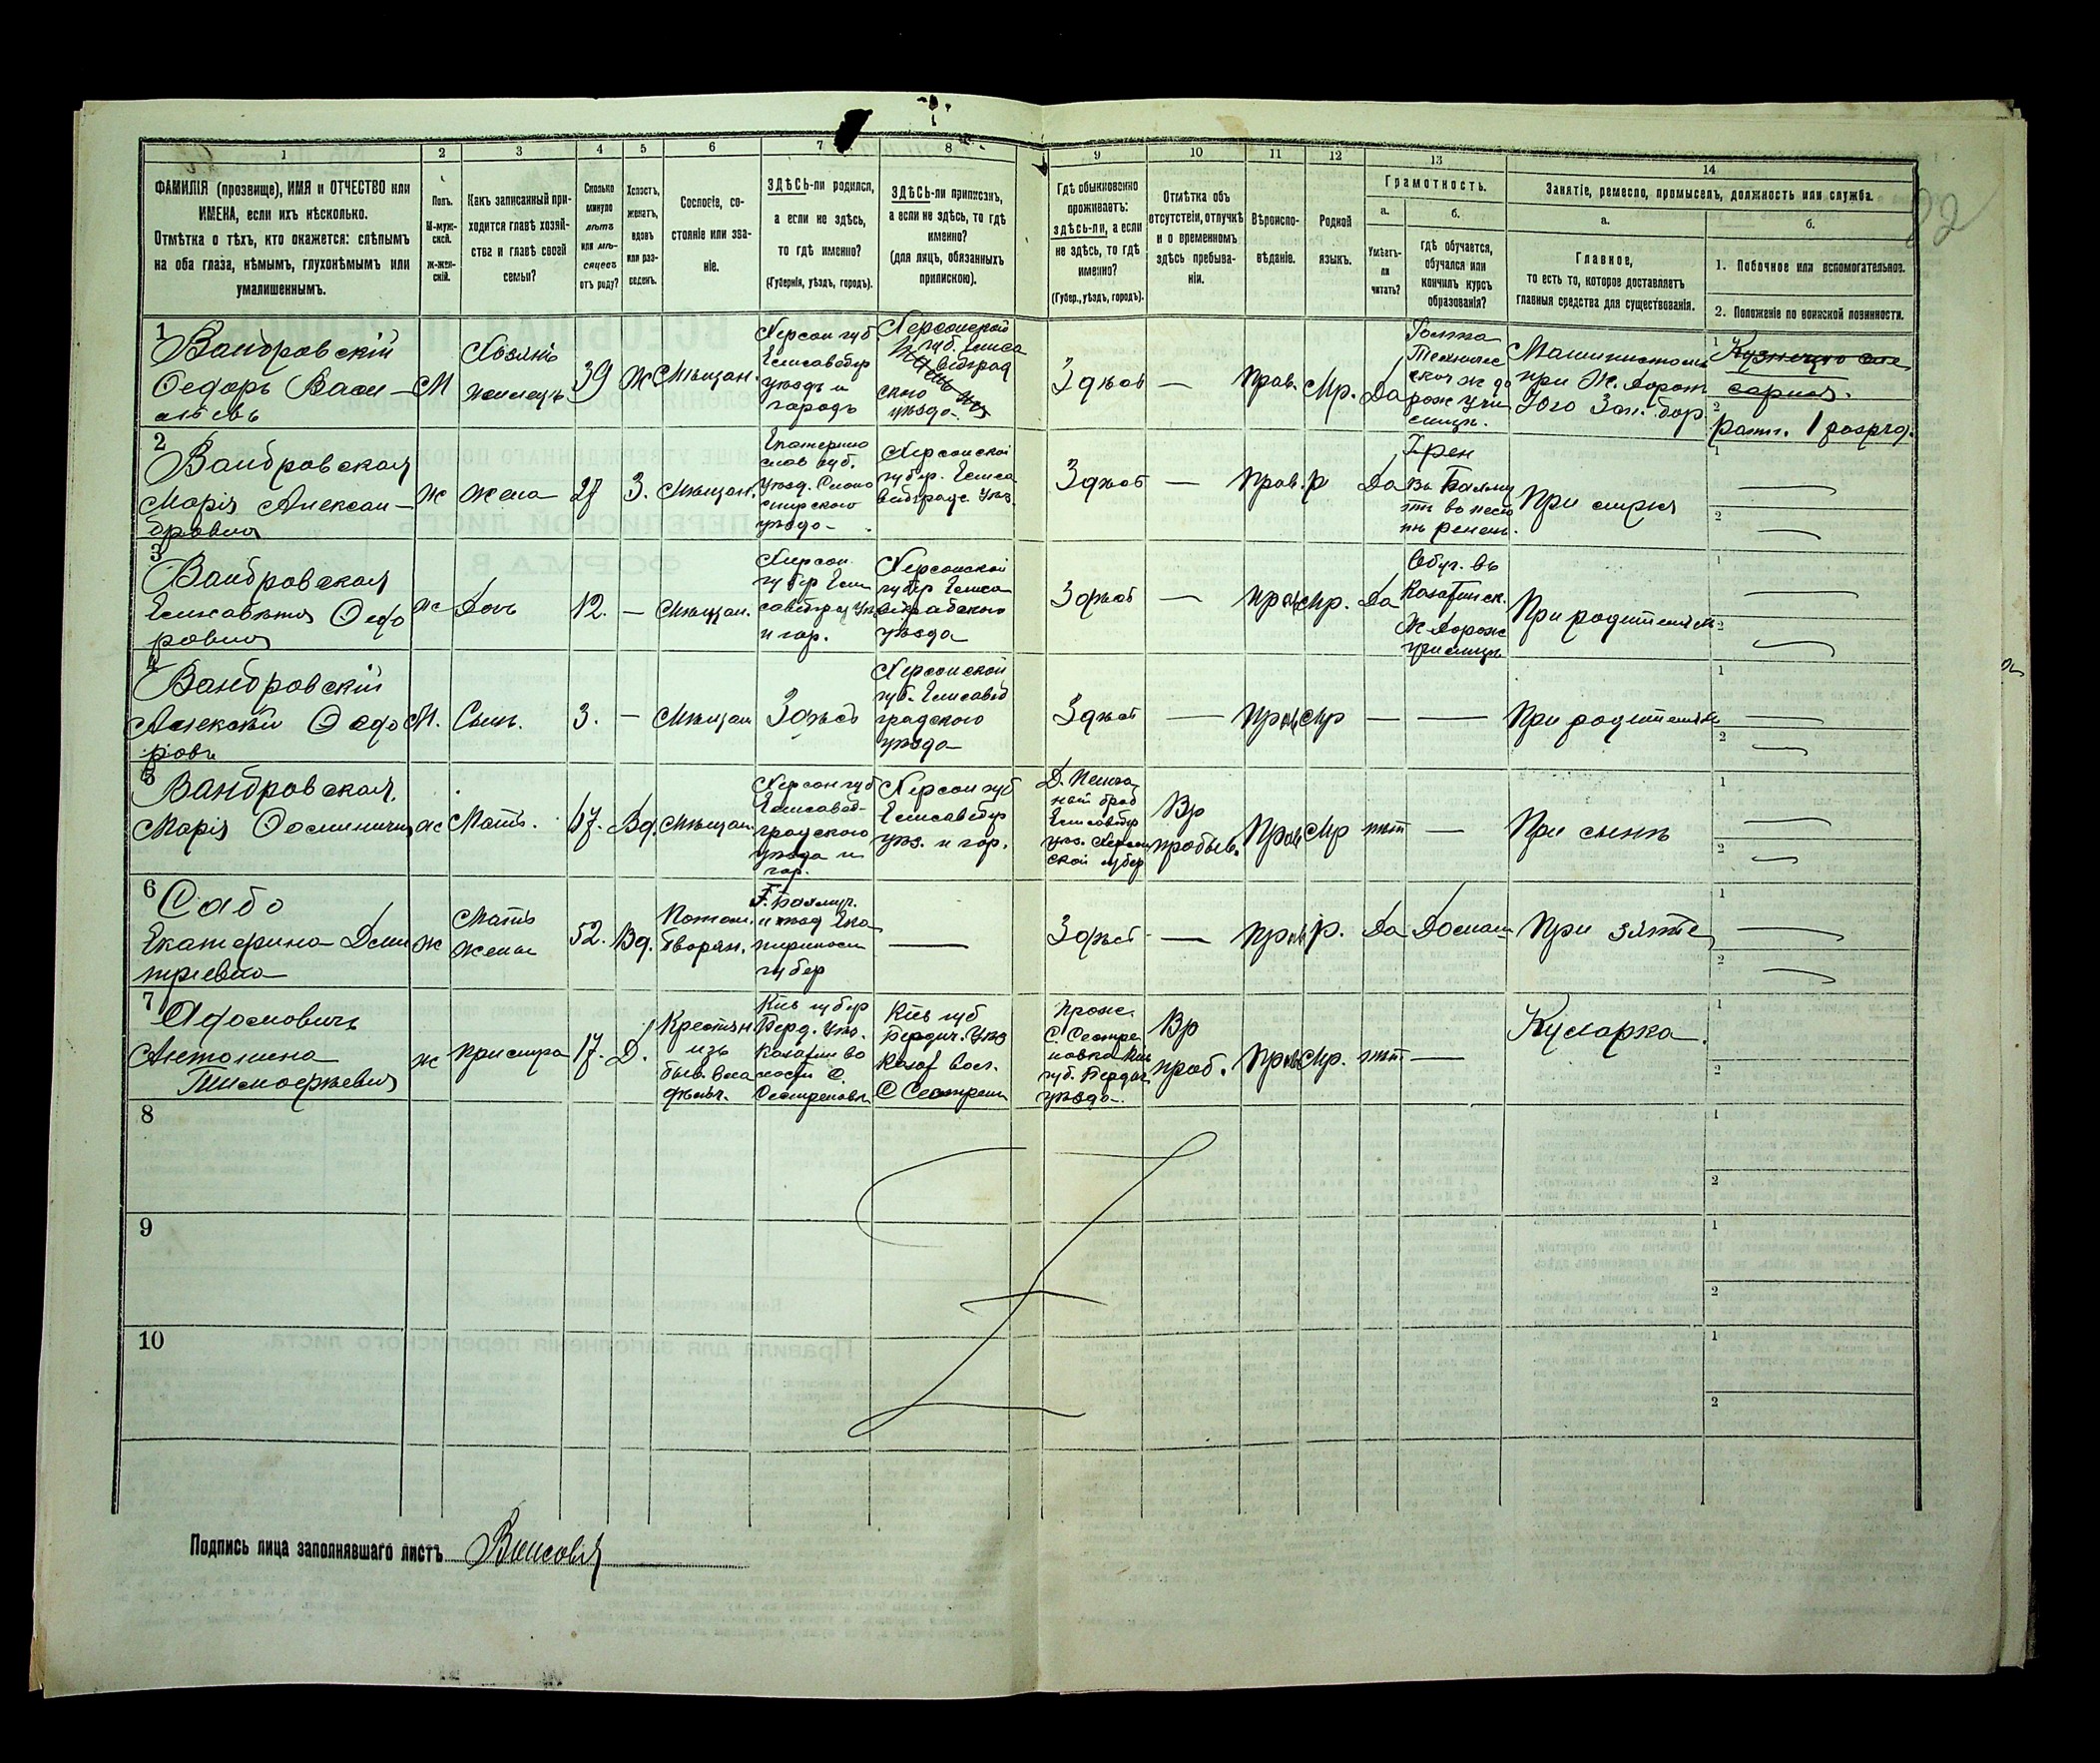 1 2 3 4 5 6 7 8 9 10 11 12 13 14
ФАМИЛІЯ (прозвище), ИМЯ и ОТЧЕСТВО или
ИМЕНА, если ихъ нѣсколько.
Отмѣтка о тѣхъ, кто окажется: слѣпымъ
на оба глаза, нѣмымъ, глухонѣмымъ или
умалишеннымъ.
Полъ.
М-муж-
ской.
Ж-жен-
скій.
Какъ записанный при-
ходится главѣ хозяй-
ства и главѣ своей
семьи?
Сколько
минуло
лѣтъ
или мѣ-
сяцевъ
отъ роду?
Холостъ,
женатъ,
вдовъ
или раз-
веденъ.
Сословіе, со-
стояніе или зва-
ніе.
ЗДѢСЬ-ли родился,
а если не здѣсь,
то гдѣ именно?
(Губернія, уѣздъ, городъ).
ЗДѢСЬ-ли приписанъ,
а если не здѣсь, то гдѣ
именно?
(для лицъ, обязанныхъ
припискою).
Гдѣ обыкновенно
проживаетъ:
здѣсь-ли, а если
не здѣсь, то гдѣ
именно?
(Губер., уѣздъ, городъ).
Отмѣтка объ
отсутствіи, отлучкѣ
и о временномъ
здѣсь пребыва-
ніи.
Вѣроиспо-
вѣданіе.
Родной
языкъ.
Грамотность.
а.
Умѣетъ-
ли
читать?
б.
гдѣ обучается,
обучался или
кончилъ курсъ
образованія?
Занятіе, ремесло, промыселъ, должность или служба.
а.
Главное,
то есть то, которое доставляетъ
главныя средства для существованія.
б.
1. Побочное или вспомогательное.
2. Положеніе по воинской повинности.
22
1
Вандровскій
Ѳедоръ Васи-
льевъ
М
Хозяинъ
39
Ж
Мѣщан.
Херсон губ
Елисаветгр
уѣздъ и
городъ
Херсонской
губ. Елиса
ветград
ского
уѣзда
Здѣсь
—
Прав.
Мр.
Да
Техничес
ской ж до
рож учи
лищѣ.
Машинистомъ
при Ж. Дорог
Юго Зап. дор.
1
2
Ратн. 1 разряд.
2
Вандровская
Марія Алексан-
дровна
Ж
Жена
27
З.
Мѣщан.
Екатерино
слав губ.
уѣзда
Херсонской
губер. Елиса
ветградс. уѣз.
Здѣсь
—
Прав.
Р
Да
При мужѣ
1
2
3
Вандровская
Елисавета Ѳедо
ровна
Ж
Дочь
12.
—
Мѣщан.
Херсон
губер Ели
саветград уѣз
и гор.
Херсонской
губер Елиса
ветградского
уѣзда
Здѣсь
—
Прав
Мр.
Да
Обуч. въ
Казатинск.
Ж Дорож
училищѣ
При родителяхъ
1
2
4
Вандровскій
Алексѣй Ѳедо
ровъ
М.
Сынъ.
3.
—
Мѣщан
Здѣсь
Херсонской
губ. Елисавет
градского
уѣзда
Здѣсь
—
Прав
Мр
—
—
При родителяхъ
1
2
5
Вандровская
Марія
Ж
Мать.
67.
Вд.
Мѣщан.
Херсон губ
Елисавет-
градского
уѣзда и
гор.
Херсон губ
Елисаветгр
уѣз. и гор.
Елисаветгр
уѣз. Херсон
ской губер
Вр
пребыв.
Прав
Мр
нѣт
—
При сынѣ
1
2
6
Сабо
Екатерина Дми
тріевна
Ж
Мать
жены
52.
Вд.
Потом.
дворян.
Г. Бахмут.
и уѣзд Ека
териносл
губер
—
Здѣсь
—
Прав
Р.
Да
Домаш
При зятѣ
1
2
7
Адамовичъ
Антонина
Тимофѣевна
Ж
Прислуга
17.
Д.
Крестьян
изъ
Кіев губер
Берд. уѣз.
Казатин во
лости С.
Сестреновк
Кіев губ
Бердич. уѣз
Казат вол.
С Сестрен
Прож.
С. Сестре
новка Кіев
губ. Бердич
уѣзда.
Вр
преб.
Прав
Мр.
нѣт
—
Кухарка.
1
2
8
1
2
9
1
2
10
1
2
Подпись лица заполнявшаго листъ